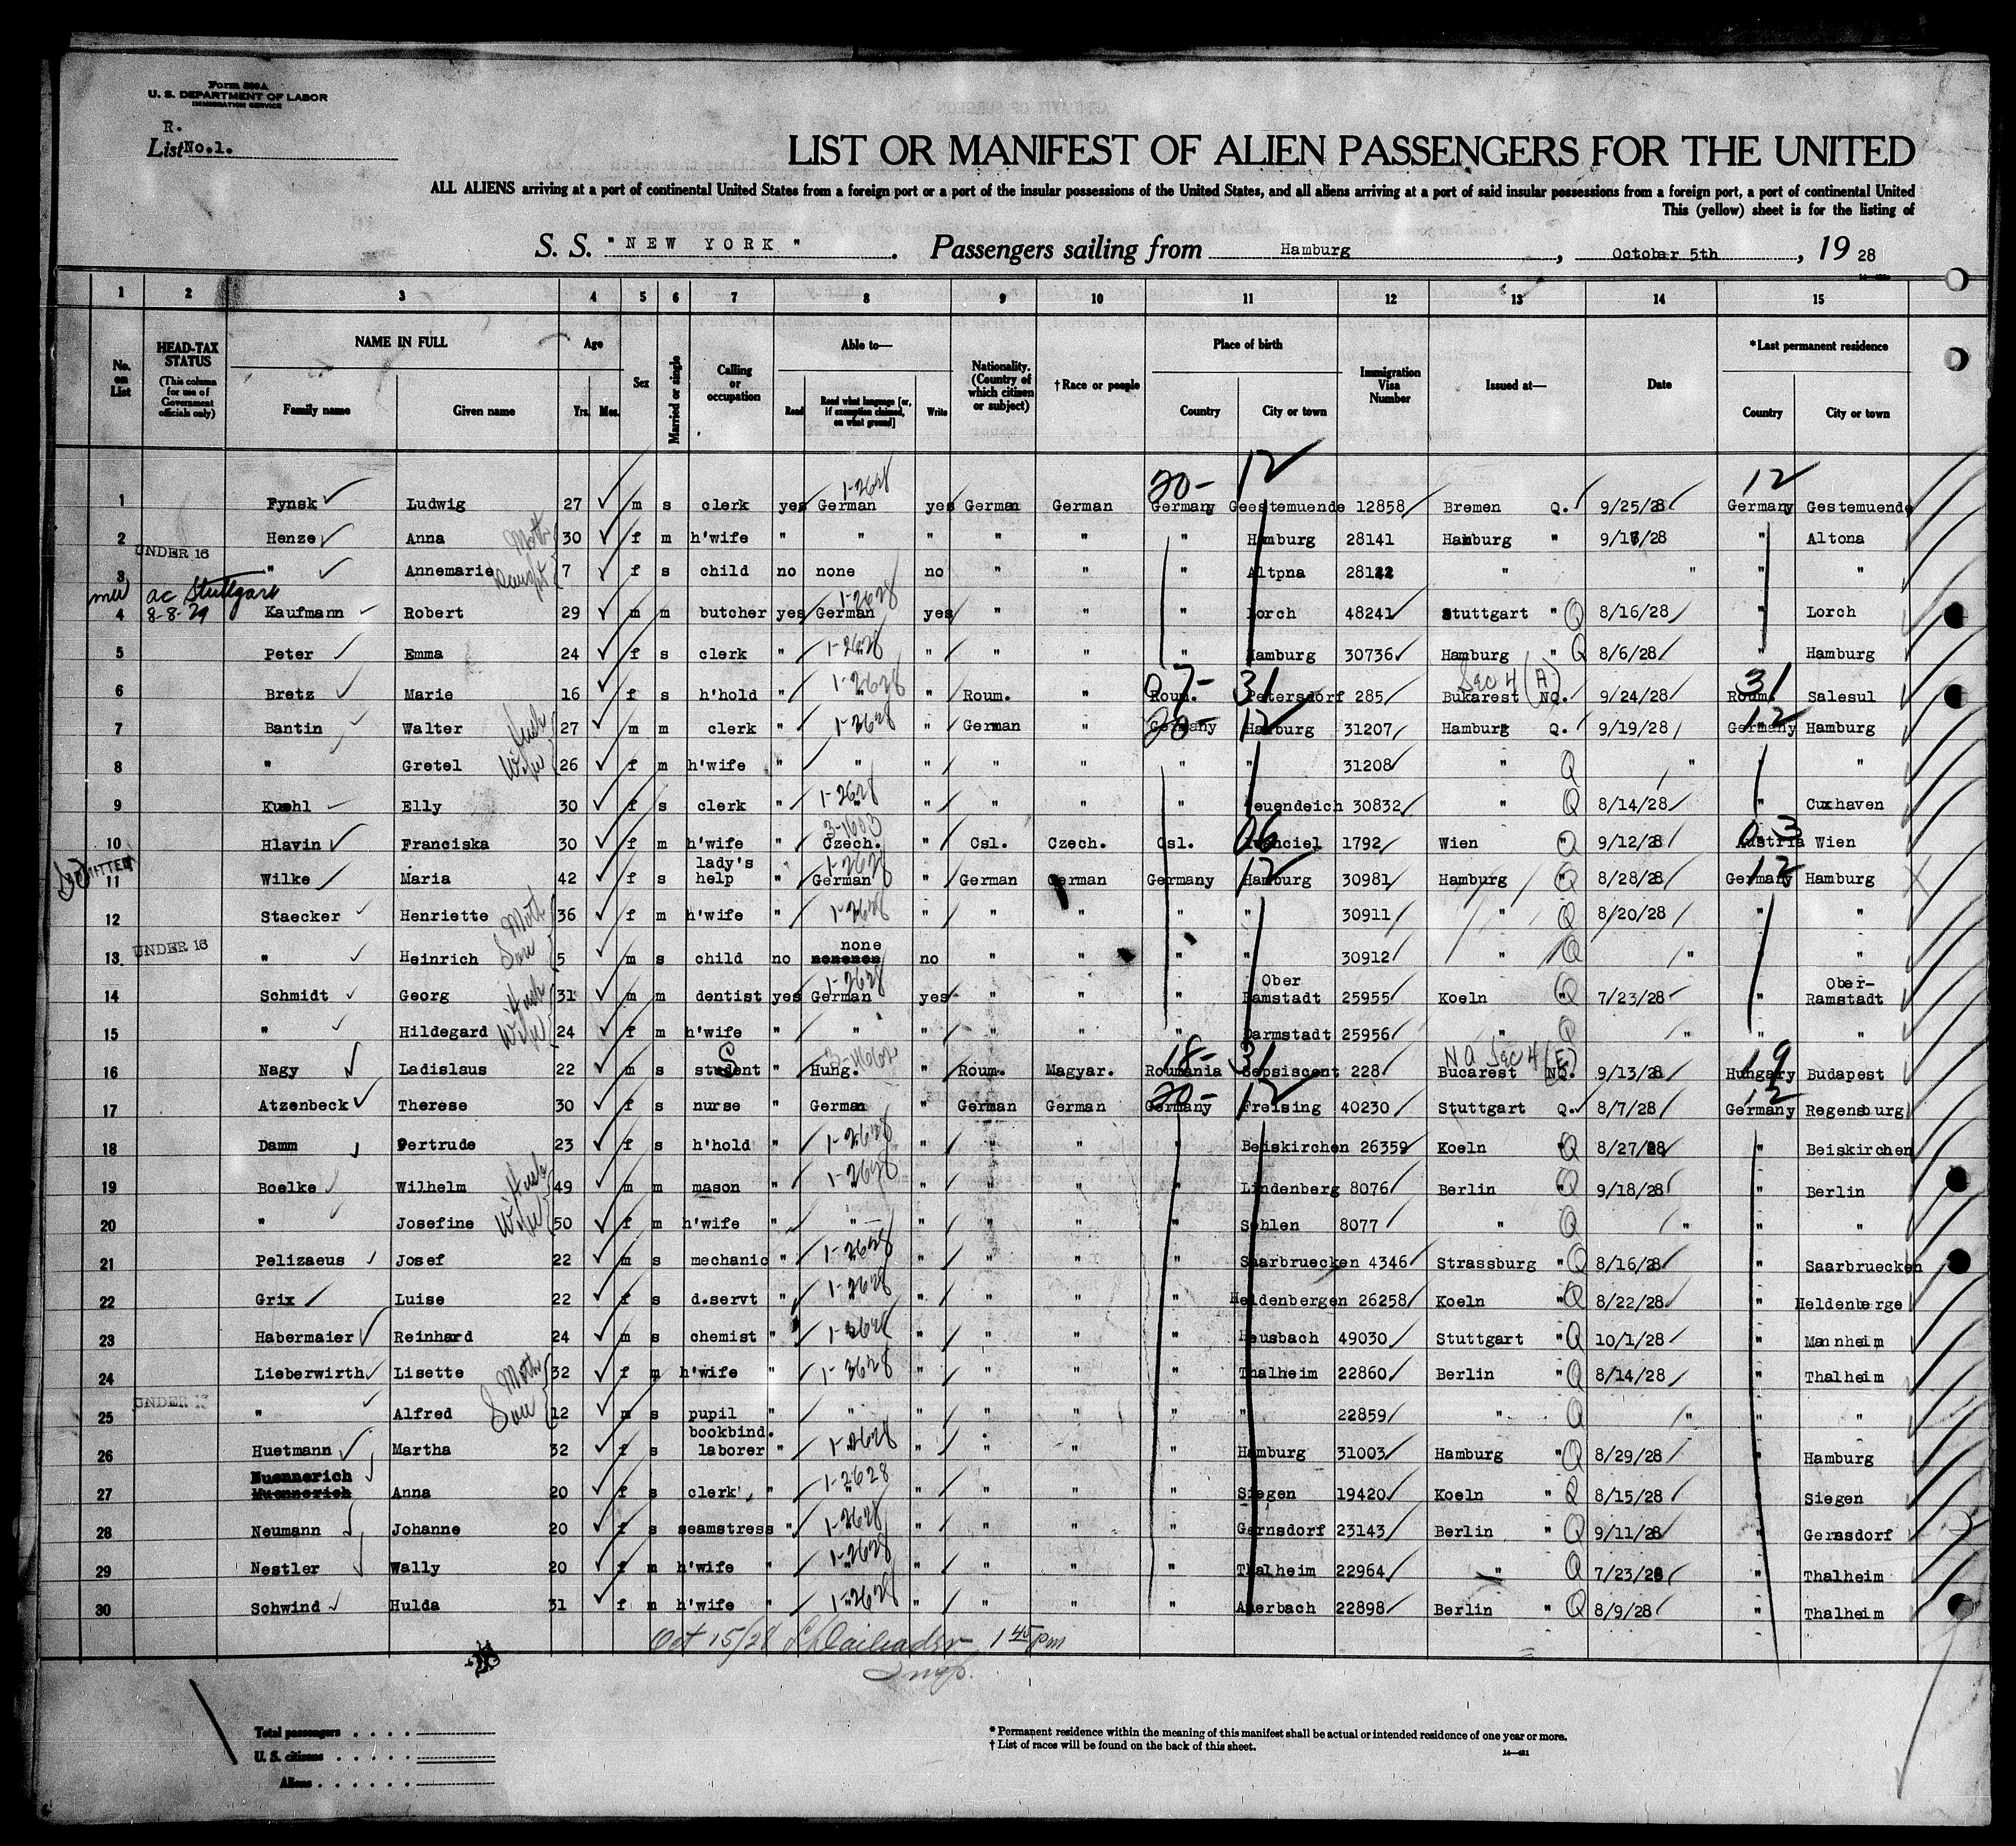 Form 500A
U. S. DEPARTMENT OF LABOR
IMMIGRATION SERVICE
R.
List No.1.
LIST OR MANIFEST OF ALIEN PASSENGERS FOR THE UNITED
ALL ALIENS arriving at a port of continental United States from a foreign port or a port of the insular possessions of the United States, and all aliens arriving at a port of said insular possessions from a foreign port, a port of continental United
This (yellow) sheet is for the listing of
S. S. "NEW YORK". Passengers sailing from Hamburg, October 5th, 19 28
1 2 3 4 5 6 7 8 9 10 11 12 13 14 15
No. on List
HEAD-TAX STATUS (This column for use of Government officials only)
NAME IN FULL Family name Given name
Age Yrs. Mos.
Sex
Married or single
Calling or occupation
Able to— Read Read what language [or, if exemption claimed, on what ground] Write
Nationality. (Country of which citizen or subject)
†Race or people
Place of birth Country City or town
Immigration Visa Number
Issued at—
Date
*Last permanent residence Country City or town
20- 12 1-2628 12
1 Fynsk Ludwig 27 m s clerk yes German yes German German Germany Geestemuende 12858 Bremen Q. 9/25/28 Germany Gestemuende
2 Henze Anna Moth 30 f m h'wife " " " " " " Hamburg 28141 Hamburg " 9/17/28 " Altona
UNDER 16
3 " Annemarie Daught 7 f s child no none no " " " Altpna 28142 " " " "
ac Stuttgart
4 8-8-29 Kaufmann Robert 29 m m butcher yes German 1-2628 yes " " " Lorch 48241 Stuttgart " Q 8/16/28 " Lorch
5 Peter Emma 24 f s clerk " 1-2628 " " " " Hamburg 30736 Hamburg " Q 8/6/28 " Hamburg
07- 31 Sec 4 (A) 31
6 Bretz Marie 16 f s h'hold " 1-2628 " Roum. " Roum. Petersdorf 285 Bukarest NQ. 9/24/28 Roum. Salesul
20- 12 12
7 Bantin Walter Husb 27 m m clerk " 1-2628 " German " Germany Hamburg 31207 Hamburg Q. 9/19/28 Germany Hamburg
8 " Gretel Wife 26 f m h'wife " " " " " " " 31208 " Q " " "
9 Kuehl Elly 30 f s clerk " 1-2628 " " " " Neuendeich 30832 " Q 8/14/28 " Cuxhaven
3-1003 06 03
10 Hlavin Franciska 30 f m h'wife " Czech. " Csl. Czech. Csl. 1792 Wien " Q 9/12/28 Austria Wien
ADMITTED 1-2628 12 12
11 Wilke Maria 42 f s lady's help " German " German German Germany Hamburg 30981 Hamburg Q 8/28/28 Germany Hamburg
12 Staecker Henriette Moth 36 f m h'wife " 1-2628 " " " " " 30911 " Q 8/20/28 " "
UNDER 16
13 " Heinrich Son 5 m s child no none no " " " " 30912 " Q " " "
14 Schmidt Georg Husb 31 m m dentist yes German 1-2628 yes " " " Ober Ramstadt 25955 Koeln " Q 7/23/28 " Ober-Ramstadt
15 " Hildegard Wife 24 f m h'wife " " " " " " Darmstadt 25956 " Q " " "
S 18- 31 NQ Sec 4 (E) 19
16 Nagy Ladislaus 22 m s student " Hung. " Roum. Magyar. Roumania Sepsiscent 228 Bucarest NQ. 9/13/28 Hungary Budapest
20- 12 12
17 Atzenbeck Therese 30 f s nurse " German " German German Germany Freising 40230 Stuttgart Q. 8/7/28 Germany Regensburg
18 Damm Gertrude 23 f s h'hold " 1-2628 " " " " Beiskirchen 26359 Koeln " Q 8/27/28 " Beiskirchen
19 Boelke Wilhelm Husb 49 m m mason " 1-2628 " " " " Lindenberg 8076 Berlin " Q 9/18/28 " Berlin
20 " Josefine Wife 50 f m h'wife " " " " " " Sohlen 8077 " Q " " "
21 Pelizaeus Josef 22 m s mechanic " 1-2628 " " " " Saarbruecken 4346 Strassburg " Q 8/16/28 " Saarbruecken
22 Grix Luise 22 f s d.servt " 1-2628 " " " " Heldenbergen 26258 Koeln " Q 8/22/28 " Heldenberge
23 Habermaier Reinhard 24 m s chemist " 1-2628 " " " " Hausbach 49030 Stuttgart " Q 10/1/28 " Mannheim
24 Lieberwirth Lisette Moth 32 f m h'wife " 1-2628 " " " " Thalheim 22860 Berlin " Q 8/14/28 " Thalheim
UNDER 16
25 " Alfred Son 12 m s pupil " " " " " " " 22859 " Q " " "
26 Huetmann Martha 32 f s bookbind. laborer " 1-2628 " " " " Hamburg 31003 Hamburg " Q 8/29/28 " Hamburg
Nuennerich
27 Muennerich Anna 20 f s clerk " 1-2628 " " " " Siegen 19420 Koeln " Q 8/15/28 " Siegen
28 Neumann Johanne 20 f s seamstress " 1-2628 " " " " Gernsdorf 23143 Berlin " Q 9/11/28 " Gernsdorf
29 Nestler Wally 20 f m h'wife " 1-2628 " " " " Thalheim 22964 " Q 7/23/28 " Thalheim
30 Schwind Hulda 31 f m h'wife " 1-2628 " " " " Auerbach 22898 Berlin " Q 8/9/28 " Thalheim
Oct 15/28 1 45 pm
Insp.
Total passengers . . . .
U. S. citizens . . . . .
Aliens . . . . . .
* Permanent residence within the meaning of this manifest shall be actual or intended residence of one year or more.
† List of races will be found on the back of this sheet.
14—481